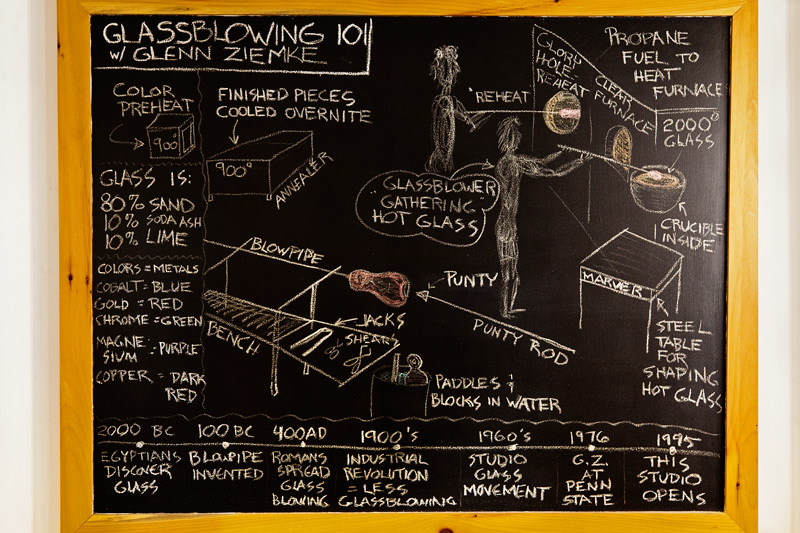 GLASSBLOWING 101
w/ GLENN ZIEMKE
COLOR
PREHEAT
900°
FINISHED PIECES
COOLED OVERNITE
900°
ANNEALER
'REHEAT
GLORY
HOLE:
REHEAT
CLEAR
FURNACE
PROPANE
FUEL TO
HEAT
FURNACE
2000°
GLASS
CRUCIBLE
INSIDE
GLASSBLOWER
GATHERING
HOT GLASS
GLASS IS:
80% SAND
10% SODA ASH
10% LIME
COLORS = METALS
COBALT = BLUE
GOLD = RED
CHROME = GREEN
MAGNE
SIUM : PURPLE
COPPER = DARK
RED
BLOWPIPE
BENCH
JACKS
SHEARS
PUNTY
PUNTY ROD
MARVER
STEEL
TABLE
FOR
SHAPING
HOT GLASS
PADDLES &
BLOCKS IN WATER
2000 BC
EGYPTIANS
DISCOVER
GLASS
100 BC
BLOWPIPE
INVENTED
400AD
ROMANS
SPREAD
GLASS
BLOWING
1900'S
INDUSTRIAL
REVOLUTION
= LESS
GLASSBLOWING
1960'S
STUDIO
GLASS
MOVEMENT
1976
G.Z.
AT
PENN
STATE
1995
THIS
STUDIO
OPENS